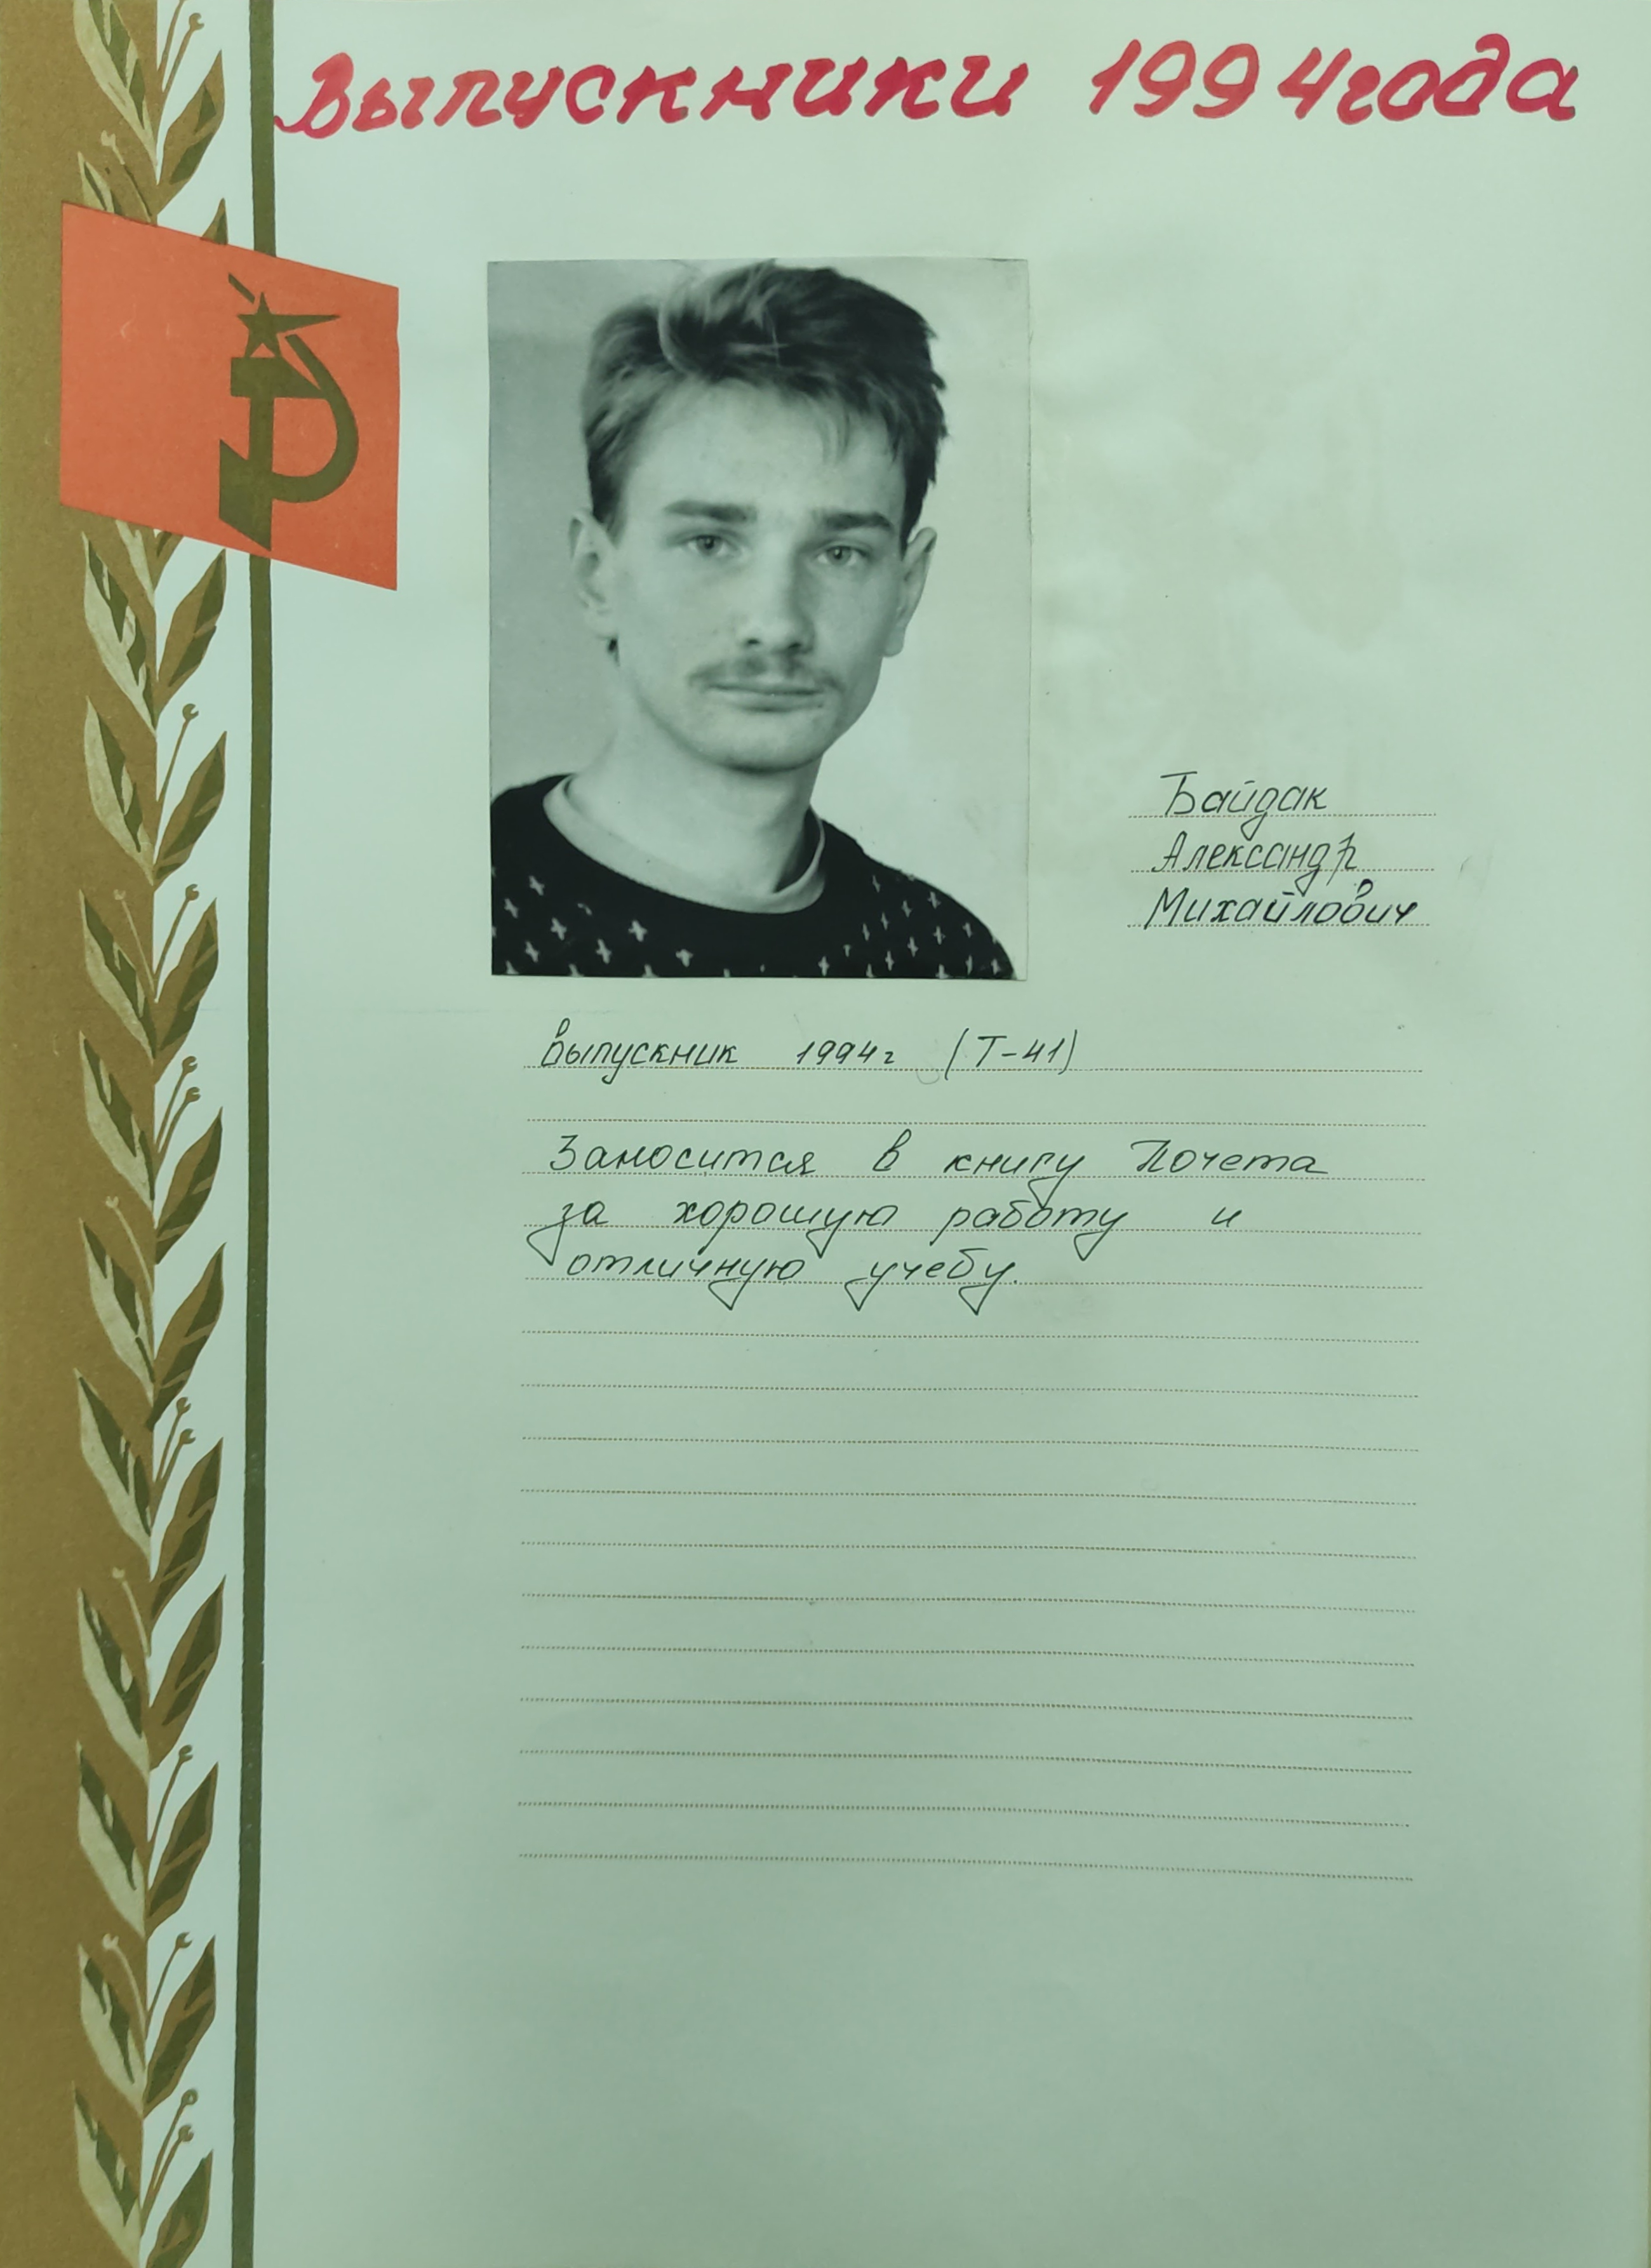 Выпускники 1994 года
Байдак
Александр
Михайлович
Выпускник 1994г (Т-41)
Заносится в книгу Почета
за хорошую работу и
отличную учебу.